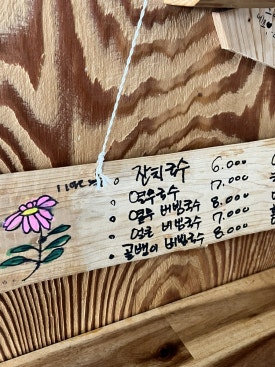 잔치국수 6.000
열무국수 7.000
열무 비빔국수 8.000
얼큰 비빔국수 7.000
골뱅이 비빔국수 8.000